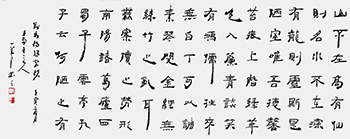 山不在高有仙
則名水不在深
有龍則靈斯是
陋室惟吾德馨
苔痕上階綠草色
入簾青談笑
有鴻儒往來
無白丁可以調
素琴閱金經無
絲竹之亂耳
無案牘之勞形
南陽諸葛廬西
蜀子雲亭孔
子云何陋之有